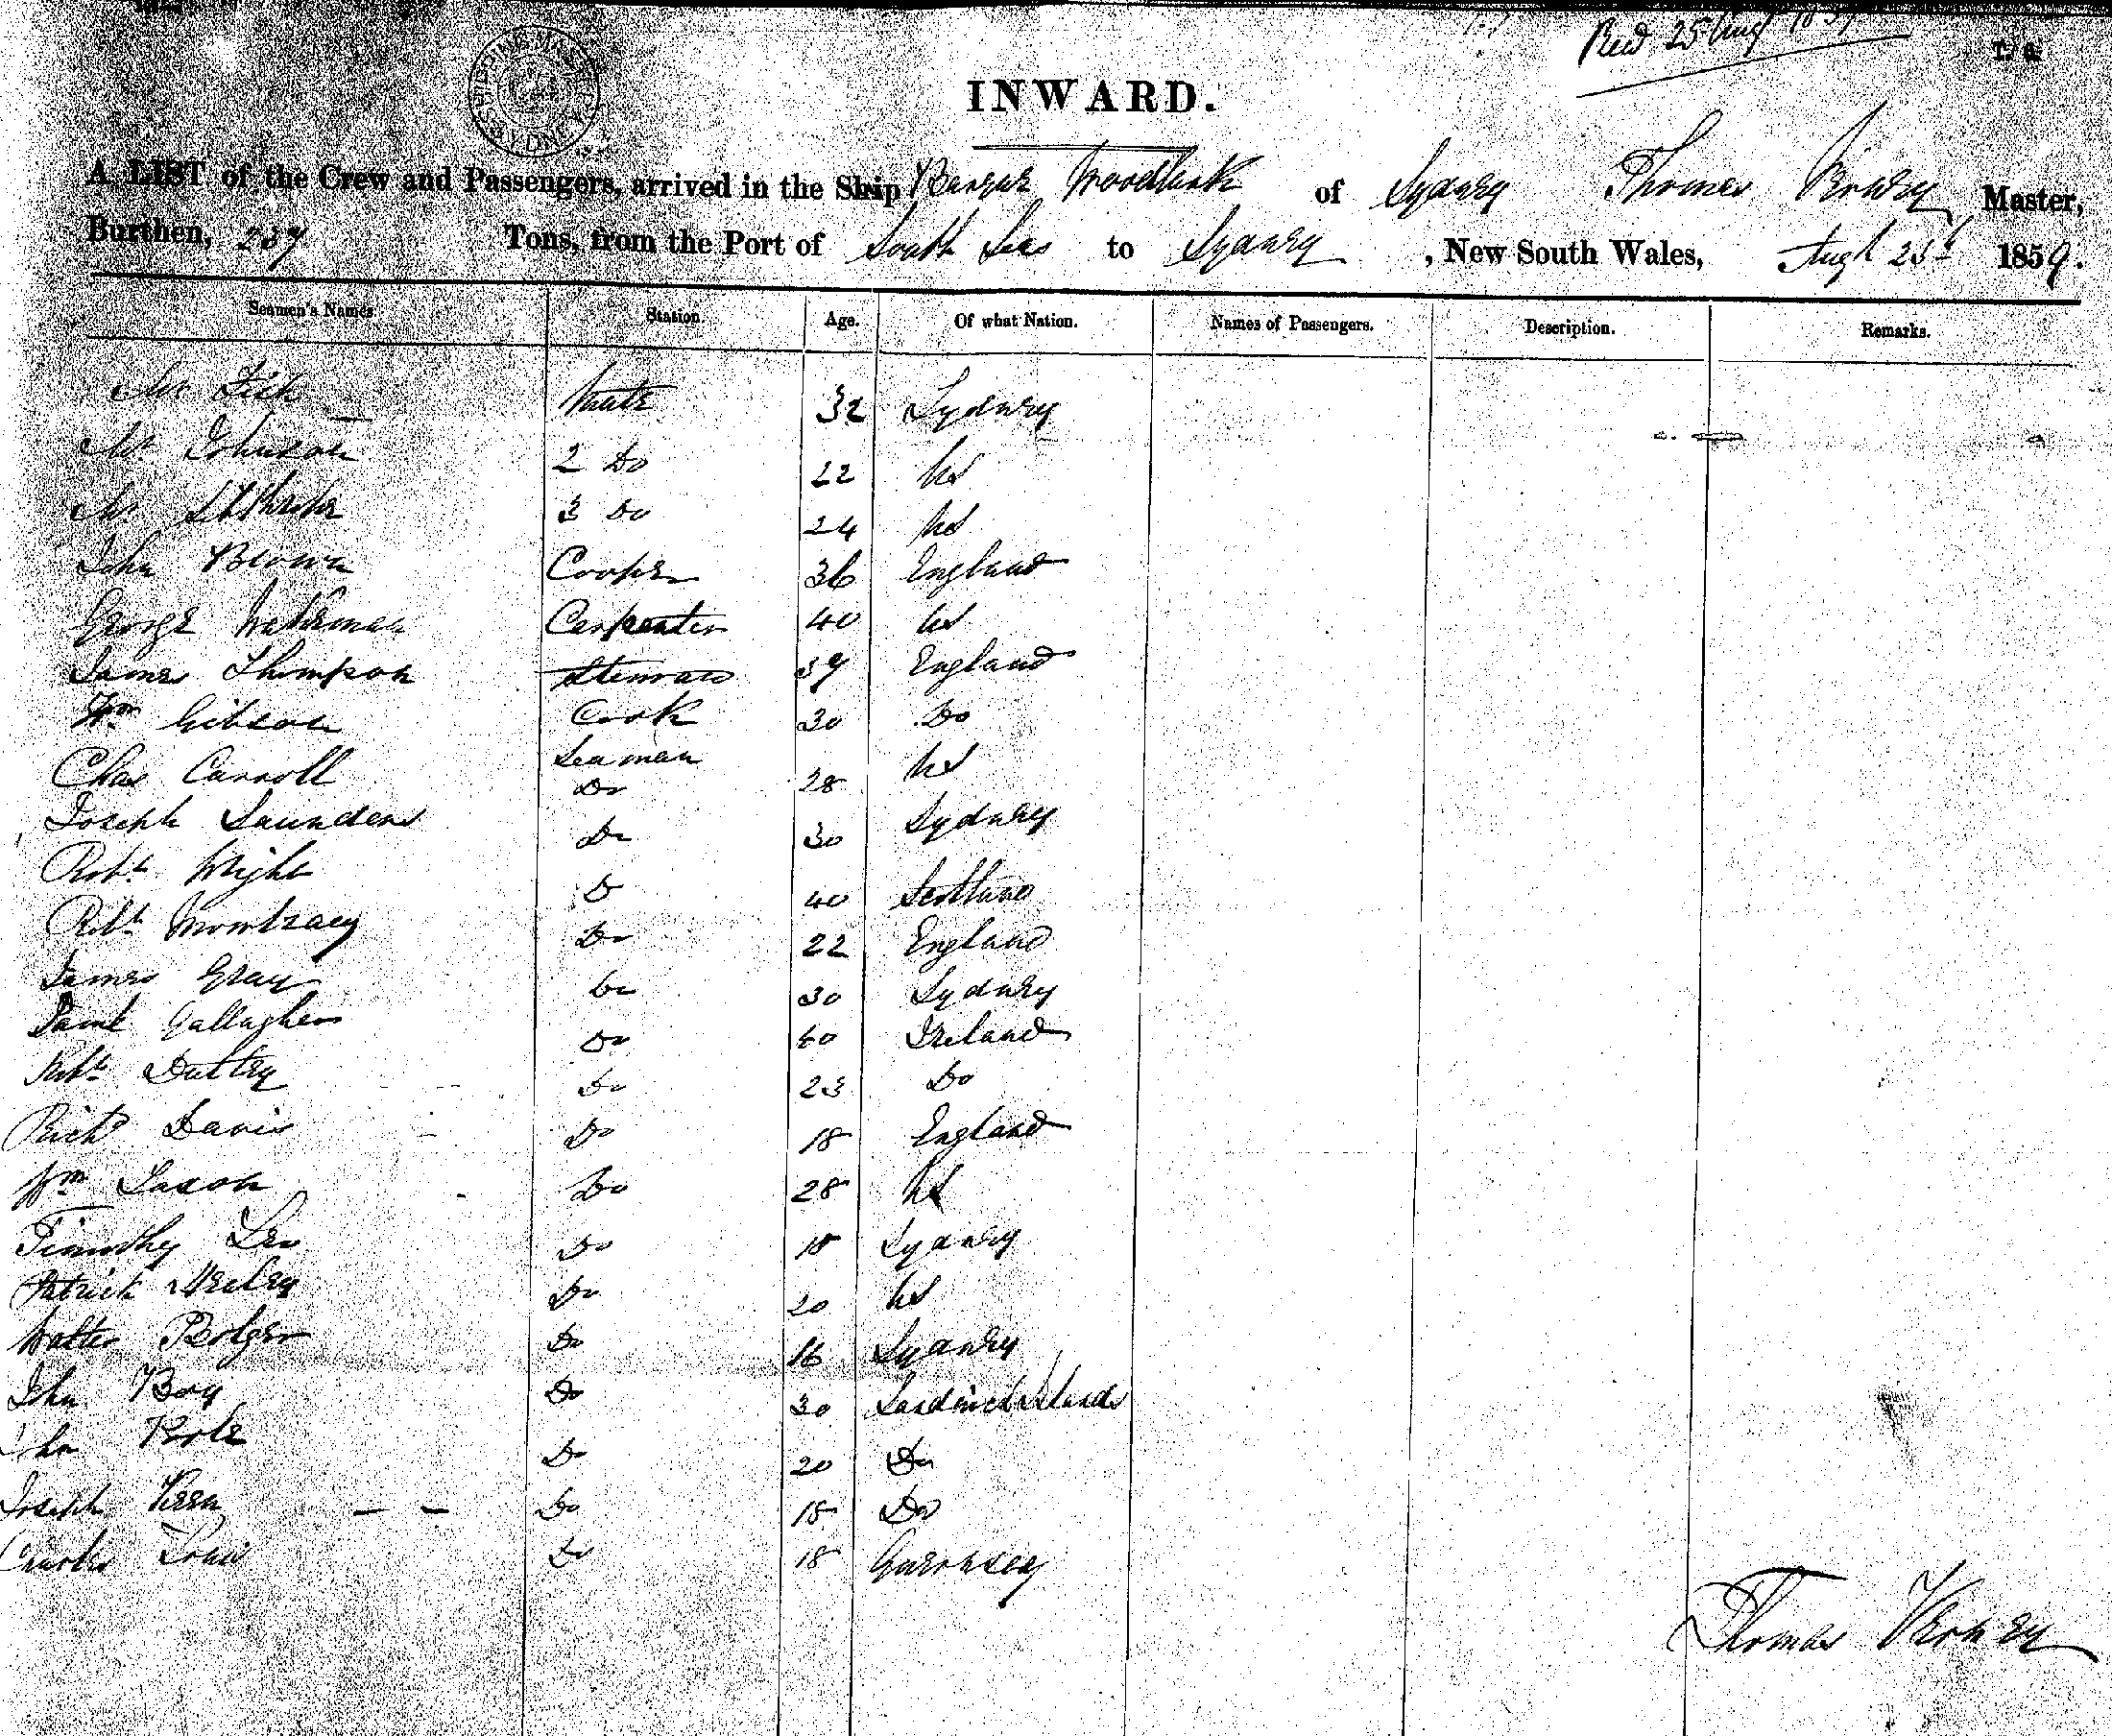 Recd 25 Aug 1859
T. S.
SHIPPING MASTER'S SYDNEY
INWARD.
A LIST of the Crew and Passengers, arrived in the Ship Barque Woodlark of Sydney Thomas Verney Master,
Burthen, 237 Tons, from the Port of South Seas to Sydney, New South Wales, Augt 25th 1859.
Seamen's Names. Station. Age. Of what Nation. Names of Passengers. Description. Remarks.
Mr Mate 32 Sydney
Mr Johnson 2 Do 22 US
Mr 3 Do 24 US
John Brown Cooper 36 England
George Waterman Carpenter 40 US
James Thompson Steward 37 England
Wm Gibson Cook 30 Do
Seaman
Chas Carroll Do 28 US
Joseph Saunders Do 30 Sydney
Robt Wright Do 40 Scotland
Robt Do 22 England
James Gray Do 30 Sydney
Gallagher Do 40 Ireland
Robt Do 23 Do
Richd Davis Do 18 England
Wm Saxon Do 28 US
Timothy Leo Do 18 Sydney
Patrick Do 20 US
Walter Bolger Do 16 Sydney
John Boy Do 30 Sandwich Islands
John Do 20 Do
Joseph Do 18 Do
Charles Do 18 Guernsey
Thomas Verney